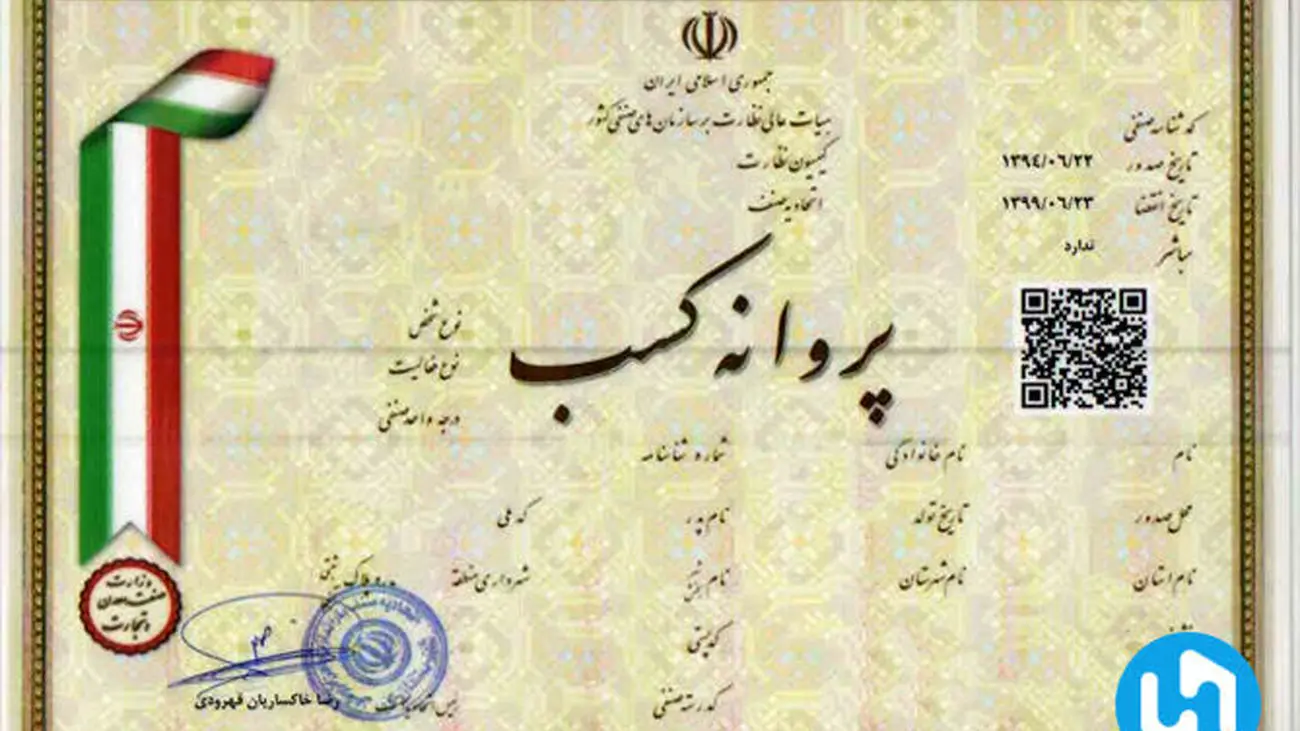 جمهوری اسلامی ایران
هیات عالی نظارت بر سازمان های صنفی کشور
کمیسیون نظارت
اتحادیه صنف
کد شناسه صنفی
تاریخ صدور ۱۳۹٤/۰٦/۲۲
تاریخ انقضا ۱۳۹۹/۰٦/۲۳
مباشر ندارد
پروانه کسب
نوع شخص
نوع فعالیت
درجه واحد صنفی
نام نام خانوادگی شماره شناسنامه
محل صدور تاریخ تولد نام پدر کد ملی
نام استان نام شهرستان نام بخش شهرداری منطقه پلاک ثبتی
کدپستی
کد رسته صنفی
وزارت
صنعت معدن
و تجارت
رضا خاکساریان قهرودی
رئیس اتحادیه